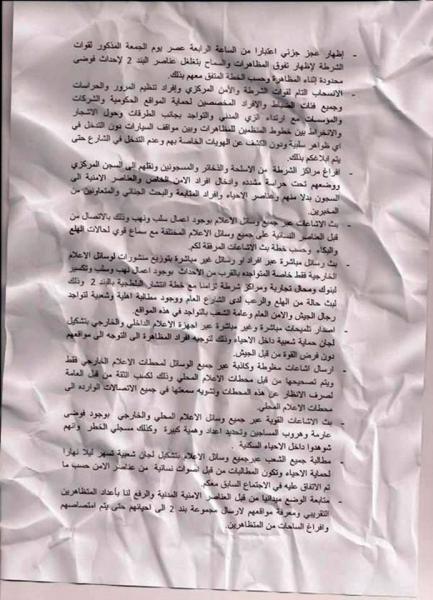 - إظهار عجز جزئي اعتبارا من الساعة الرابعة عصر يوم الجمعة المذكور لقوات
الشرطة لإظهار تفوق المظاهرات والسماح بتغلغل عناصر البند 2 لإحداث فوضى
محدودة إثناء المظاهرة وحسب الخطة المتفق معهم بذلك.
- الانسحاب التام لقوات الشرطة والأمن المركزي وإفراد تنظيم المرور والحراسات
وجميع فئات الضباط والإفراد المخصصين لحماية المواقع الحكومية والشركات
والمؤسسات مع ارتداء الزي المدني والتواجد بجانب الطرقات وحول الاشجار
والانخراط بين خطوط المنظمين للمظاهرات وبين مواقف السيارات دون التدخل في
اي ظواهر سلبية ودون الكشف عن الهويات الخاصة بهم وعدم التدخل في الشارع حتى
يتم ابلاغكم بذلك.
- افراغ مراكز الشرطة من الاسلحة والذخائر والمسجونين ونقلهم الى السجن المركزي
ووضعهم تحت حراسة مشدده وادخال افراد الامن الخاص والعناصر الامنية الى
السجون بدلا منهم وعناصر الاحياء وافراد المتابعة والبحث الجنائي والمتعاونين من
المخبرين.
- بث الاشاعات عبر جميع وسائل الاعلام بوجود اعمال سلب ونهب وذلك بالاتصال من
قبل العناصر النسائية على جميع وسائل الاعلام المختلفة مع سماع قوي لحالات الهلع
والبكاء وحسب خطة بث الاشاعات المرفقة لكم.
- بث رسائل مباشرة عبر افراد او رسائل غير مباشرة بتوزيع منشورات لوسائل الاعلام
الخارجية فقط خاصة المتواجده بالقرب من الأحداث بوجود اعمال نهب وسلب وتكسير
لبنوك ومحال تجارية ومراكز شرطة تزامنا مع خطة انتشار البلطجية بالبند 2 وذلك
لبث حالة من الهلع والرعب لدى الشارع العام ووجود مطالبة اهلية وشعبية لتواجد
رجال الجيش والامن العام وعامة الشعب بالتواجد في هذه المواقع.
- اصدار تلميحات مباشرة وغير مباشرة عبر اجهزة الاعلام الداخلي والخارجي بتشكيل
لجان حماية شعبية داخل الاحياء وذلك لتوجيه افراد المظاهرة الى التوجه الى مواقعهم
دون فرض القوة من قبل الجيش.
- ارسال اشاعات مغلوطة وكاذبة عبر جميع الوسائل لمحطات الاعلام الخارجي فقط
ويتم تصحيحها من قبل محطات الاعلام المحلي وذلك لكسب الثقة من قبل العامة
لصرف الانظار عن هذه المحطات وتشويه سمعتها في جميع الاتصالات الوارده الى
محطات الاعلام المحلي.
- بث الاشاعات القوية عبر جميع وسائل الاعلام المحلي والخارجي بوجود فوضى
عارمة وهروب المساجين وتحديد اعداد وهمية كبيرة وكذلك مسجلي الخطر وانهم
شوهدوا داخل الاحياء السكنية.
- مطالبة جميع الشعب عبرجميع وسائل الاعلام بتشكيل لجان شعبية تسهر ليلا نهارا
لحماية الاحياء وتكون المطالبات من قبل اصوات نسائية من عناصر الامن حسب ما
تم الاتفاق عليه في الاجتماع السابق معكم.
- متابعة الوضع ميدانيا من قبل العناصر الامنية المدنية والرفع لنا بأعداد المتظاهرين
التقريبي ومعرفة مواقعهم لارسال مجموعة بند 2 الى احيائهم حتى يتم امتصاصهم
وافراغ الساحات من المتظاهرين.